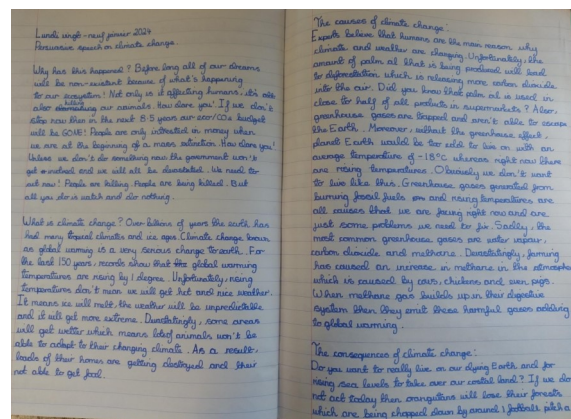 Lundi vingt-neuf janvier 2024
Persuasive speech on climate change.
Why has this happened? Before long all of our dreams
will be non-existent because of what's happening
to our ecosystem! Not only is it affecting humans, it's also
killing our animals. How dare you! If we don't
stop now then in the next 8.5 years our zero CO2 budget
will be GONE! People are only interested in money when
we are at the beginning of a mass extinction. How dare you!
Unless we don't do something now the government won't
get involved and we will all be devastated. We need to
act now! People are killing. People are being killed. But
all you do is watch and do nothing.
What is climate change? Over billions of years the earth has
had many tropical climates and ice ages. Climate change known
as global warming is a very serious change to earth. For
the last 150 years, records show that global warming
temperatures are rising by 1 degree. Unfortunately, rising
temperatures don't mean we will get hot and nice weather.
It means ice will melt, the weather will be unpredictable
and it will get more extreme. Devastatingly, some areas
will get wetter which means lots of animals won't be
able to adapt to their changing climate. As a result,
loads of their homes are getting destroyed and their
not able to get food.
The causes of climate change:
Experts believe that humans are the main reason why
climate and weather are changing. Unfortunately, the
amount of palm oil that is being produced will lead
to deforestation which is releasing more carbon dioxide
into the air. Did you know that palm oil is used in
close to half of all products in supermarkets? Also,
greenhouse gases are trapped and aren't able to escape
the Earth. Moreover, without the greenhouse effect,
planet Earth would be too cold to live on with an
average temperature of -18°C whereas right now there
are rising temperatures. Obviously we don't want
to live like this. Greenhouse gases generated from
burning fossil fuels and rising temperatures are
all causes that we are facing right now and are
just some problems we need to fix. Sadly, the
most common greenhouse gases are water vapour,
carbon dioxide and methane. Devastatingly, farming
has caused an increase in methane in the atmosphere
which is caused by cows, chickens and even pigs.
When methane gas builds up in their digestive
system then they emit these harmful gases adding
to global warming.
The consequences of climate change:
Do you want to really live on our dying Earth and for
rising sea levels to take over our costal land? If we do
not act today then orangutans will lose their forests
which are being chopped down by around 1 football pitch a